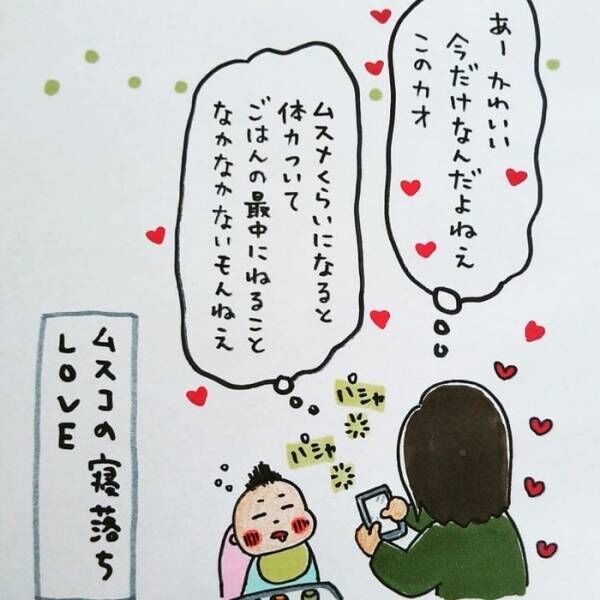 あー かわいい
今だけなんだよねえ
このカオ
ムスメくらいになると
体力ついて
ごはんの最中にねること
なかなかないもんねえ
パシャ
パシャ
ムスコの寝落ち
LOVE